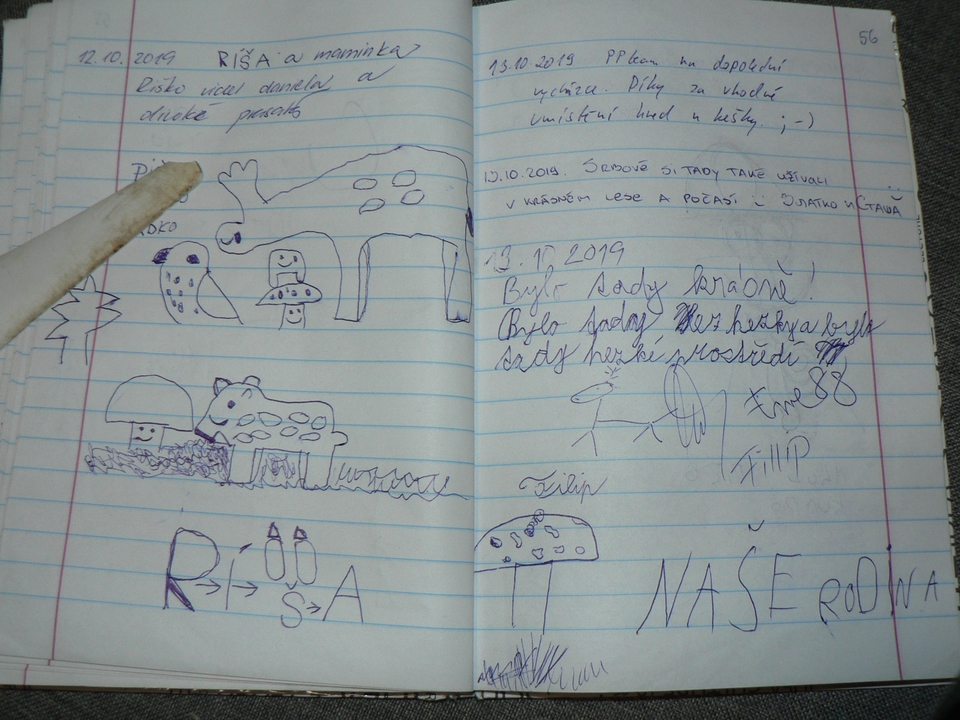 12.10.2019 RÍŠA a maminka
Ríško viděl daniela a
divoké prasátko
56
13.10.2019 PPteam na dopolední
vycházce. Díky za vhodné
umístění hned u kešky. ;-)
13.10.2019. SRBOVÉ SI TADY TAKÉ UŽÍVALI
V KRÁSNÉM LESE A POČASÍ
13.10.2019
Bylo tady krásně!
Bylo tady hezky a bylo
tady hezké prostředí
Fillip
Filip
RÍŠA
NAŠE RODINA